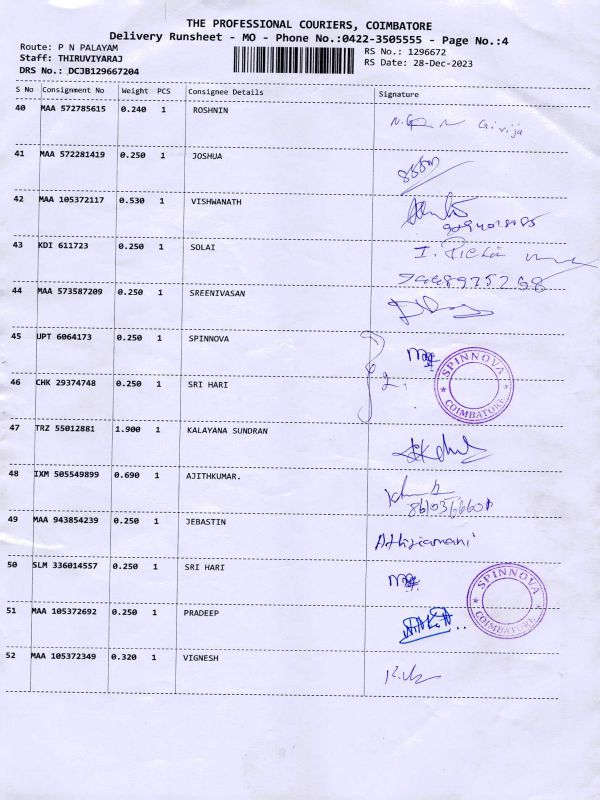 THE PROFESSIONAL COURIERS, COIMBATORE
Delivery Runsheet - MO - Phone No.:0422-3505555 - Page No.:4
Route: P N PALAYAM
RS No.: 1296672
Staff: THIRUVIYARAJ
RS Date: 28-Dec-2023
DRS No.: DCJB129667204
S No Consignment No Weight PCS Consignee Details Signature
40 MAA 572785615 0.240 1 ROSHNIN Girija
41 MAA 572281419 0.250 1 JOSHUA
42 MAA 105372117 0.530 1 VISHWANATH
43 KDI 611723 0.250 1 SOLAI
44 MAA 573587209 0.250 1 SREENIVASAN
45 UPT 6064173 0.250 1 SPINNOVA
SPINNOVA
COIMBATORE
46 CHK 29374748 0.250 1 SRI HARI
47 TRZ 55012881 1.900 1 KALAYANA SUNDRAN
48 IXM 505549899 0.690 1 AJITHKUMAR.
49 MAA 943854239 0.250 1 JEBASTIN
50 SLM 336014557 0.250 1 SRI HARI
SPINNOVA
COIMBATORE
51 MAA 105372692 0.250 1 PRADEEP
52 MAA 105372349 0.320 1 VIGNESH